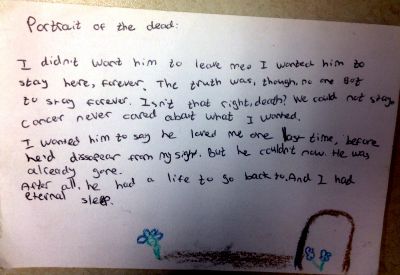 Portrait of the dead:
I didn't want him to leave me. I wanted him to
stay here, forever. The truth was, though, no one got
to stay forever. Isn't that right, death? We could not stay.
Cancer never cared about what I wanted.
I wanted him to say he loved me one last time, before
he'd dissopear from my sight. But he couldn't now. He was
already gone.
After all, he had a life to go back to. And I had
eternal sleep.